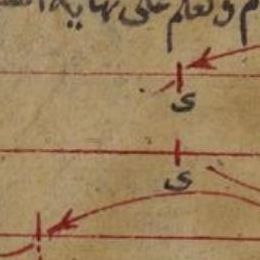 م ونعلم على نهاية
ى
ى